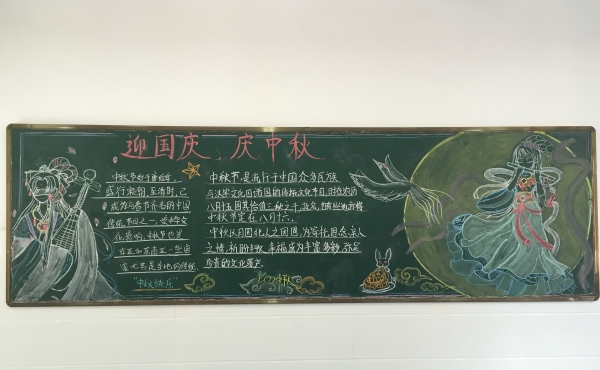 迎国庆,庆中秋
中秋节始于唐朝初,
盛行宋朝,至清时,已
成为与春节齐名的中国
传统节日之一,受中华文
化影响,中秋节也是
东亚和东南亚一些国
家尤其是当地的华侨
"中秋快乐"
中秋节,是流行于中国众多民族
与汉字文化圈诸国的传统文化节日,时在农历
八月十五因其恰值三秋之半,故名,也有些地方将
中秋节定在八月十六。
中秋以月圆兆人之团圆,为寄托思念亲人
之情,祈盼丰收、幸福,成为丰富多彩、弥足
珍贵的文化遗产